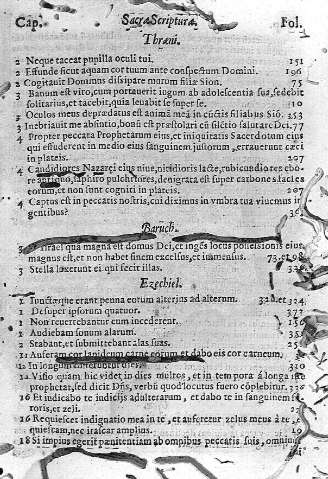 Cap. Sacræ Scripturæ. Fol.
Threni.
2 Neque taceat pupilla oculi tui. 151
2 Effunde sicut aquam cor tuum ante conspectum Domini. 196
2 Cogitavit Dominus dissipare murum filiæ Sion. 75
3 Bonum est viro, cum portauerit iugum ab adolescentia sua, sedebit
solitarius, et tacebit, quia leuabit se super se. 10
3 Oculus meus deprædatus est animã meã in cũctis filiabus Siõ. 253
3 Inebriauit me absintio, bonũ est præstolari cũ silẽtio salutare Dei. 77
4 Propter peccata Prophetarum eius, et iniquitatis Sacerdotum eius
qui effuderent in medio eius sanguinem iustorum, errauerunt cæci
in plateis. 207
4 Candidiores Nazarei eius niue, nitidiores lacte, rubicundiores ebo-
re antiquo, saphiro pulchriores, denigrata est super carbones facies
eorum, et non sunt cogniti in plateis. 207
4 Captus est in peccatis nostris, cui diximus in vmbra tua viuemus in
gentibus?
Baruch.
3 Israel quam magna est domus Dei, et ingẽs locus possessionis eius,
magnus est, et non habet finem excelsus, et immensus. 73. et 98.
3 Stellæ luxerunt ei qui fecit illas.
Ezechiel.
1 Iunctæque erant penna eorum alterius ad alterum. 324.
1 Desuper ipsorum quatuor. 327
1 Non reuertebantur cum incederent. 136
1 Audiebam sonum alarum. 351
2 Stabant, et submittebant alas suas. 25
11 Auferam cor lapideum carne eorum et dabo eis cor carneum.
12 In longum differuntur dies. 310
12 Visio quam hic videt, in dies multos, et in tempora longa iste
prophetat, sed dicit Dñs, verbũ quod locutus fuero cõplebitur. 336
16 Et indicabo te indiciis adulterarum, et dabo te in sanguinem
roris, et zeli. 27
16 Requiescet indignatio mea in te, et auferetur zelus meus à te, et
quiescam, nec irascar amplius. 19
18 Si impius egerit pænitentiam ab omnibus peccatis suis, omnium